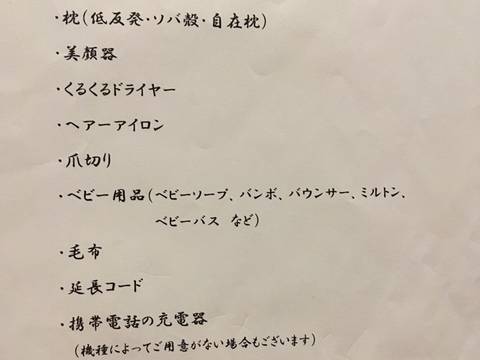 ・枕(低反発・ソバ殻・自在枕)
・美顔器
・くるくるドライヤー
・ヘアーアイロン
・爪切り
・ベビー用品(ベビーソープ、バンボ、バウンサー、ミルトン、
ベビーバス など)
・毛布
・延長コード
・携帯電話の充電器
(機種によってご用意がない場合もございます)